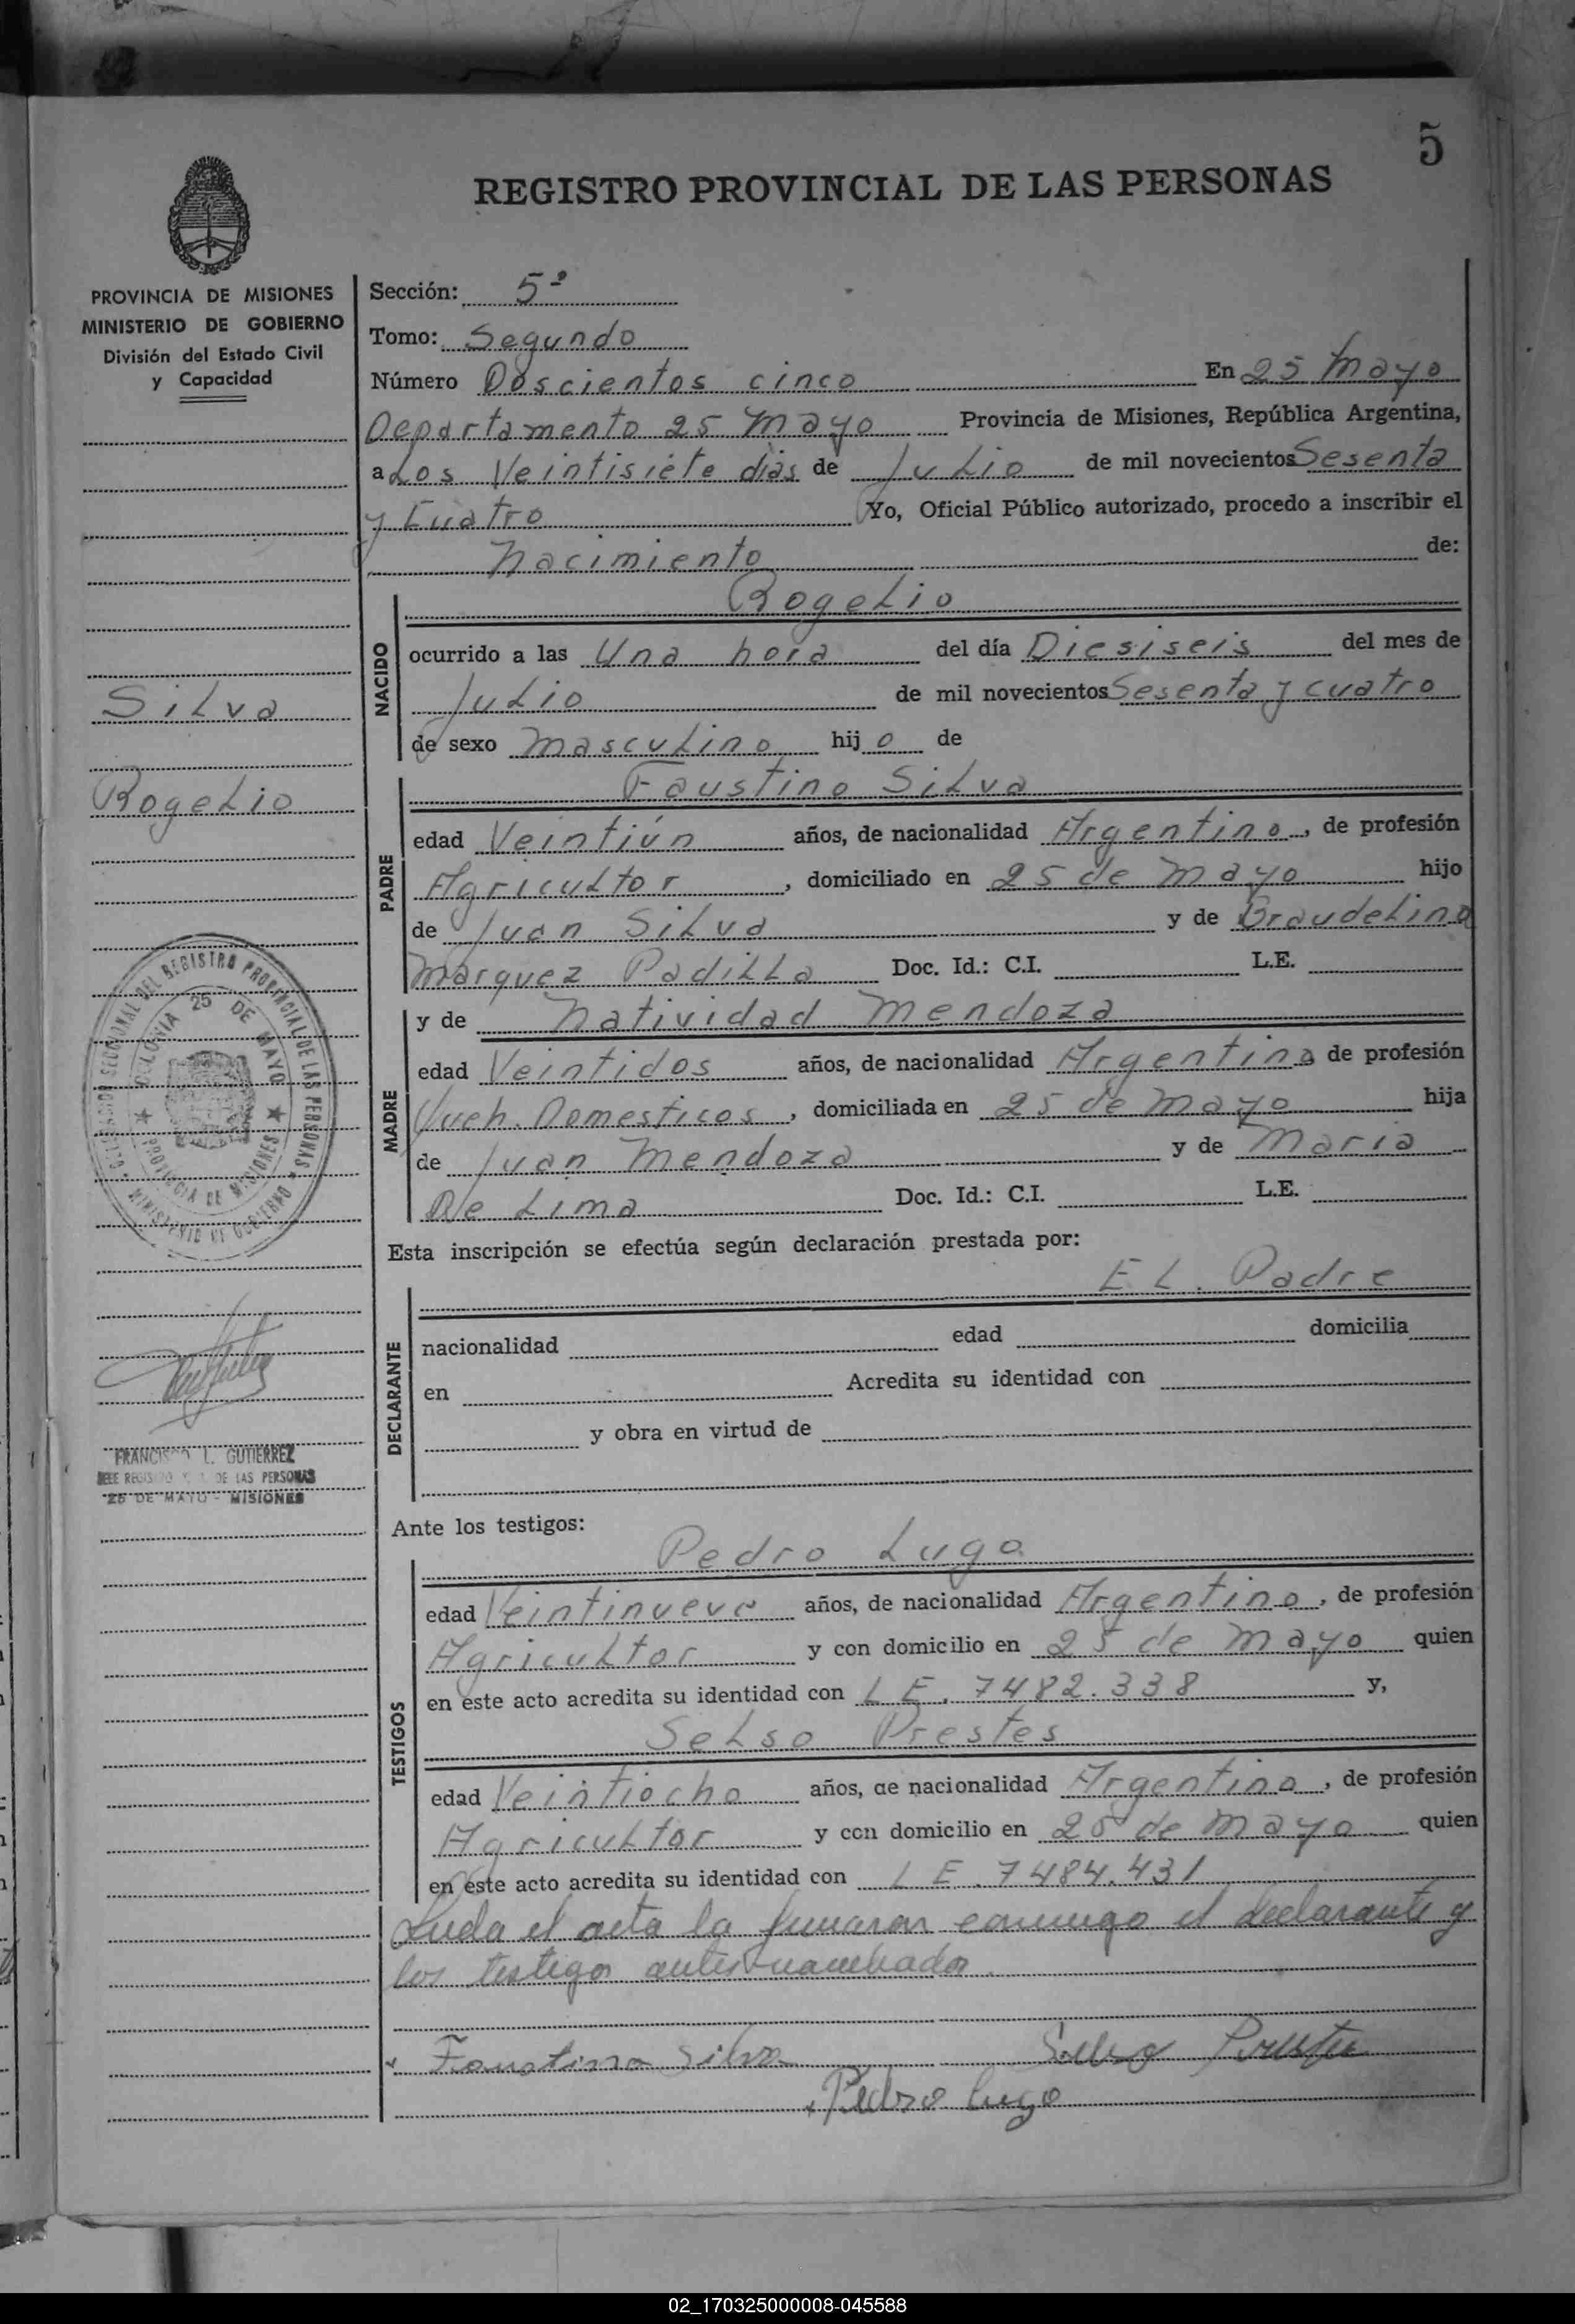 5
REGISTRO PROVINCIAL DE LAS PERSONAS
PROVINCIA DE MISIONES
MINISTERIO DE GOBIERNO
División del Estado Civil
y Capacidad
Silva
Rogelio
COLONIA 25 DE MAYO
PROVINCIA DE MISIONES
FRANCISCO L. GUTIERREZ
DE LAS PERSONAS
25 DE MAYO - MISIONES
Sección: 5ª
Tomo: Segundo
Número Doscientos cinco En 25 Mayo
Departamento 25 Mayo Provincia de Misiones, República Argentina,
a Los Veintisiete dias de Julio de mil novecientos Sesenta
y Cuatro Yo, Oficial Público autorizado, procedo a inscribir el
Nacimiento de:
NACIDO
Rogelio
ocurrido a las Una hora del día Diesiseis del mes de
Julio de mil novecientos Sesenta y cuatro
de sexo Masculino hijo de
PADRE
Faustino Silva
edad Veintiún años, de nacionalidad Argentino, de profesión
Agricultor, domiciliado en 25 de Mayo hijo
de Juan Silva y de Braudelina
Marquez Padilla Doc. Id.: C.I. L.E.
MADRE
y de Natividad Mendoza
edad Veintidos años, de nacionalidad Argentina de profesión
Queh. Domesticos, domiciliada en 25 de Mayo hija
de Juan Mendoza y de Maria
De Lima Doc. Id.: C.I. L.E.
Esta inscripción se efectúa según declaración prestada por:
DECLARANTE
EL. Padre
nacionalidad edad domicilia
en Acredita su identidad con
y obra en virtud de
Ante los testigos:
TESTIGOS
Pedro Lugo
edad Veintinueve años, de nacionalidad Argentino, de profesión
Agricultor y con domicilio en 25 de Mayo quien
en este acto acredita su identidad con L E. 7482.338 y,
Selso Prestes
edad Veintiocho años, de nacionalidad Argentino, de profesión
Agricultor y con domicilio en 25 de Mayo quien
en este acto acredita su identidad con L E. 7484.431
Leida el acta la firmaron conmigo el declarante y
los testigos antes nombrados.
Faustino Silva Selso Prestes
Pedro Lugo
02_170325000008-045588